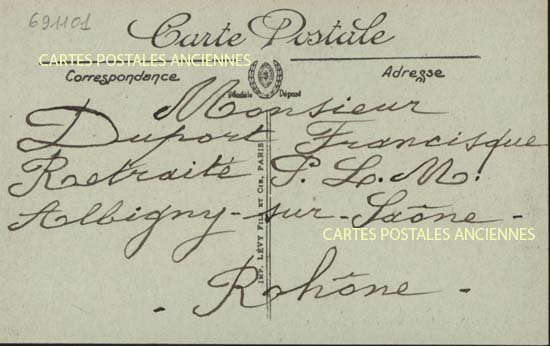 691101
Carte Postale
CARTES POSTALES ANCIENNES
Correspondance
Adresse
Modèle Déposé
Monsieur
Duport Francisque
Retraité P. L. M.
Albigny-sur-Saône-
CARTES POSTALES ANCIENNES
- Rhône -
IMP. LÉVY FILS ET CIE, PARIS